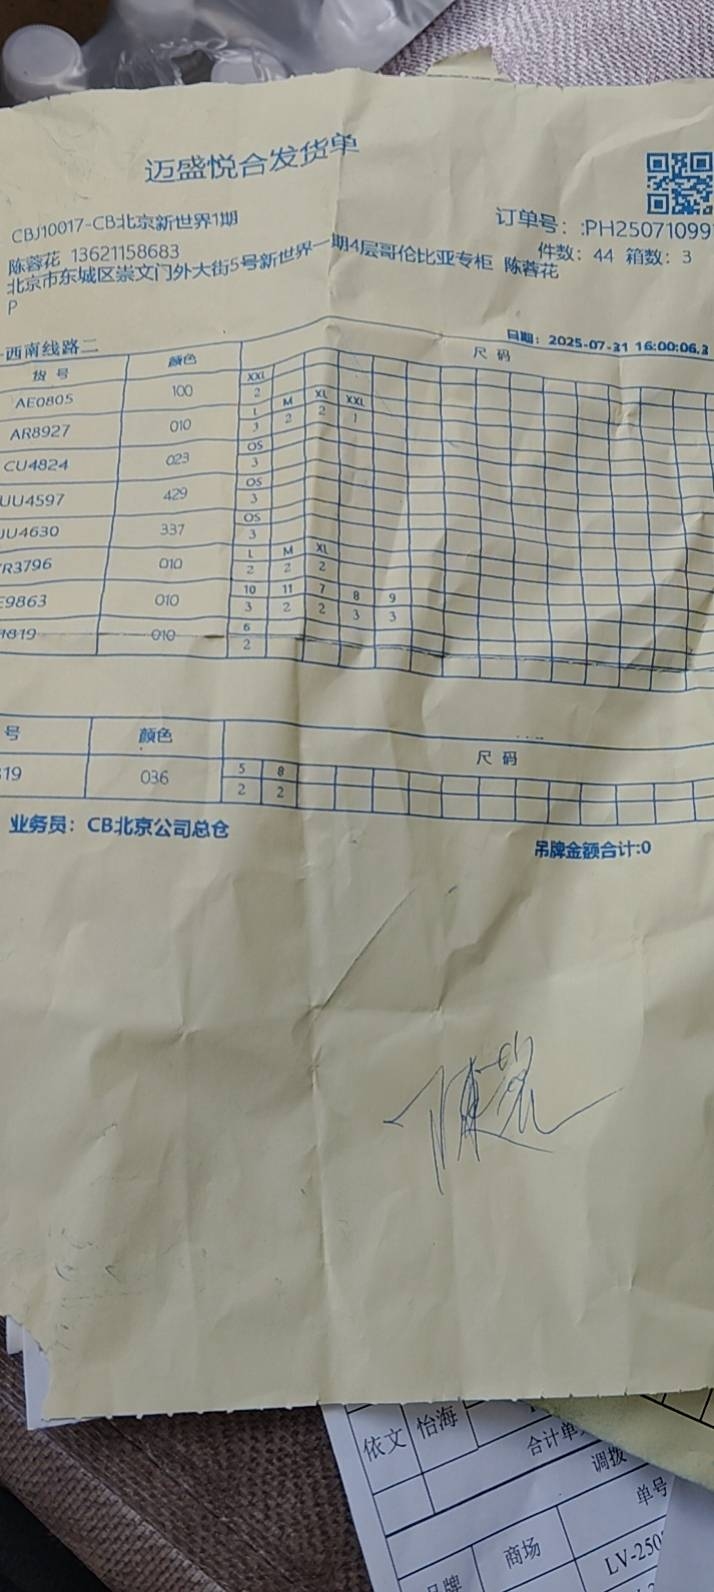 迈盛悦合发货单
CBJ10017-CB北京新世界1期
订单号：:PH25071099
陈蓉花 13621158683
件数：44 箱数：3
北京市东城区崇文门外大街5号新世界一期4层哥伦比亚专柜 陈蓉花
P
-西南线路二
日期：2025-07-31 16:00:06.3
货号 颜色 尺码
AE0805 100 XXL
2
AR8927 010 L M XL XXL
3 2 2 1
CU4824 023 OS
3
UU4597 429 OS
3
UU4630 337 OS
3
R3796 010 L M XL
2 2 2
9863 010 10 11 7 8 9
3 2 2 3 3
1819 010 6
2
号 颜色 尺码
19 036 5 8
2 2
业务员：CB北京公司总仓
吊牌金额合计:0
依文 怡海
合计单
调拨
单号
商场
LV-250
品牌